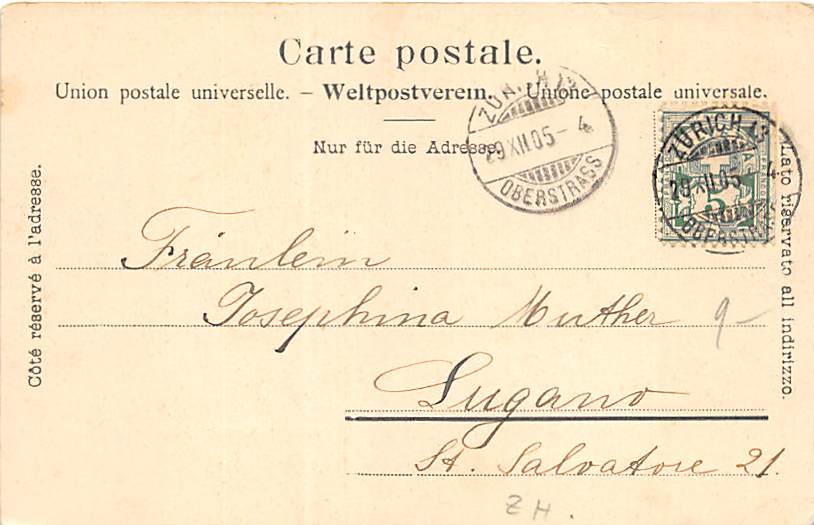 Carte postale.
Union postale universelle. – Weltpostverein. Unione postale universale.
Nur für die Adresse.
ZÜRICH 13
29 XII 05 – 4
OBERSTRASS
ZÜRICH 13
29 XII 05 4
OBERSTRASS
5
Côté réservé à l'adresse.
Lato riservato all indirizzo.
Fräulein
Josephina Muther
9–
Lugano
St. Salvatore 21.
ZH.